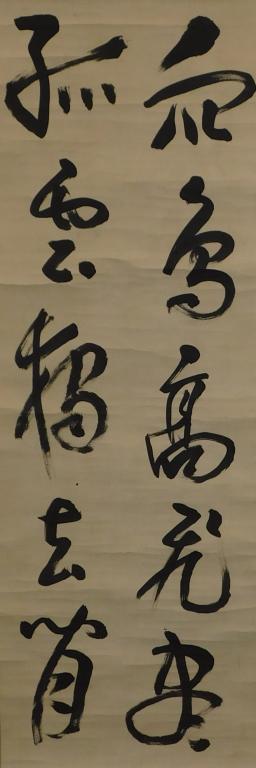 衆鳥高飛盡
孤雲獨去閒